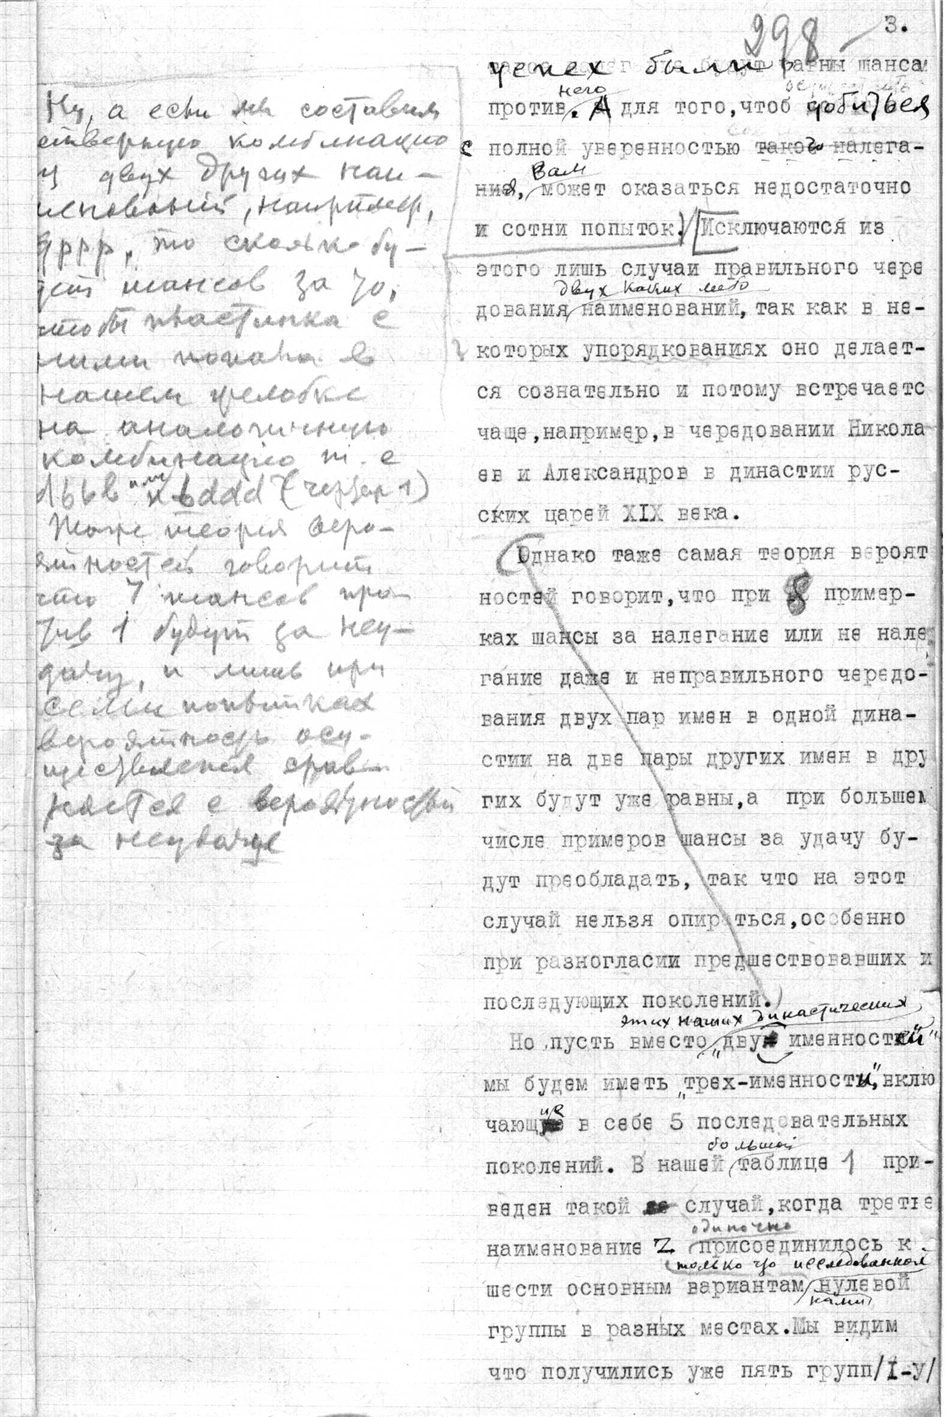 298
3.
Ну, а если мы составим
четверную комбинацию
из двух других наи-
менований, например,
qppp, то сколько бу-
дет шансов за то,
чтобы пластинка с
ними попала в
нашем желобке
на аналогичную
комбинацию т. е
dbbb или bddd (чертеж 1)
Та же теория веро-
ятностей говорит
что 7 шансов про-
тив 1 будут за неу-
дачу, и лишь при
семи попытках
вероятность осу-
ществления срав-
няется с вероятностью
за неудачу
успех были равны шансам
него
против. А для того, чтоб добиться
с полной уверенностью такого налега-
Вам
ния, может оказаться недостаточно
и сотни попыток./ Исключаются из
этого лишь случаи правильного чере
двух каких либо
дования наименований, так как в не-
которых упорядкованиях оно делает-
ся сознательно и потому встречаетс
чаще, например, в чередовании Никола
ев и Александров в династии рус-
ских царей XIX века.
Однако таже самая теория вероят
ностей говорит, что при 8 пример-
ках шансы за налегание или не нале
гание даже и неправильного чередо-
вания двух пар имен в одной дина-
стии на две пары других имен в дру
гих будут уже равны, а при большем
числе примеров шансы за удачу бу-
дут преобладать, так что на этот
случай нельзя опираться, особенно
при разногласии предшествовавших и
последующих поколений.)
этих наших династических
Но пусть вместо "дву именностей"
мы будем иметь "трех-именности", вклю
чающие в себе 5 последовательных
поколений. В нашей большой таблице 1 при-
веден такой случай, когда третье
одиночно
наименование Z присоединилось к
только что исследованной
шести основным вариантам нулевой
нами
группы в разных местах. Мы видим
что получились уже пять групп/I-У/